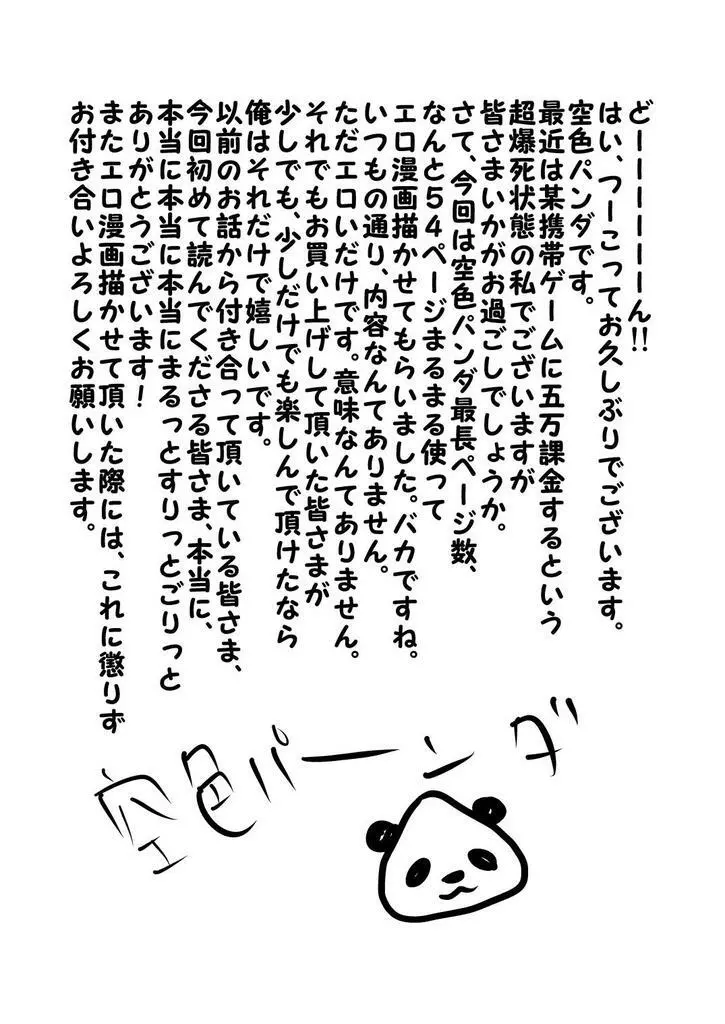 どーーーーーーん!!
はい、つーこってお久しぶりでございます。
空色パンダです。
最近は某携帯ゲームに五万課金するという
超爆死状態の私でございますが
皆さまいかがお過ごしでしょうか。
さて、今回は空色パンダ最長ページ数、
なんと54ページまるまる使って
エロ漫画描かせてもらいました。バカですね。
いつもの通り、内容なんてありません。
ただエロいだけです。意味なんてありません。
それでもお買い上げして頂いた皆さまが
少しでも、少しだけでも楽しんで頂けたなら
俺はそれだけで嬉しいです。
以前のお話から付き合って頂いている皆さま、
今回初めて読んでくださる皆さま、本当に、
本当に本当に本当にまるっとすりっとごりっと
ありがとうございます！
またエロ漫画描かせて頂いた際には、これに懲りず
お付き合いよろしくお願いします。
空色パーンダ